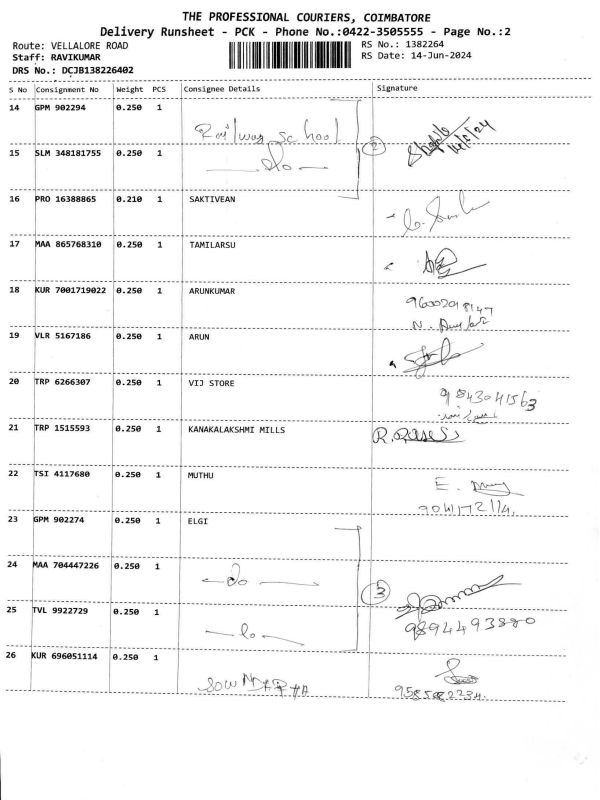 THE PROFESSIONAL COURIERS, COIMBATORE
Delivery Runsheet - PCK - Phone No.:0422-3505555 - Page No.:2
Route: VELLALORE ROAD RS No.: 1382264
Staff: RAVIKUMAR RS Date: 14-Jun-2024
DRS No.: DCJB138226402
S No Consignment No Weight PCS Consignee Details Signature
14 GPM 902294 0.250 1 Railway School
15 SLM 348181755 0.250 1 -do- 2
16 PRO 16388865 0.210 1 SAKTIVEAN
17 MAA 865768310 0.250 1 TAMILARSU
18 KUR 7001719022 0.250 1 ARUNKUMAR
19 VLR 5167186 0.250 1 ARUN
20 TRP 6266307 0.250 1 VIJ STORE 9843041563
21 TRP 1515593 0.250 1 KANAKALAKSHMI MILLS
22 TSI 4117680 0.250 1 MUTHU
23 GPM 902274 0.250 1 ELGI
24 MAA 704447226 0.250 1 -do- 3
25 TVL 9922729 0.250 1 -do- 9894493880
26 KUR 696051114 0.250 1